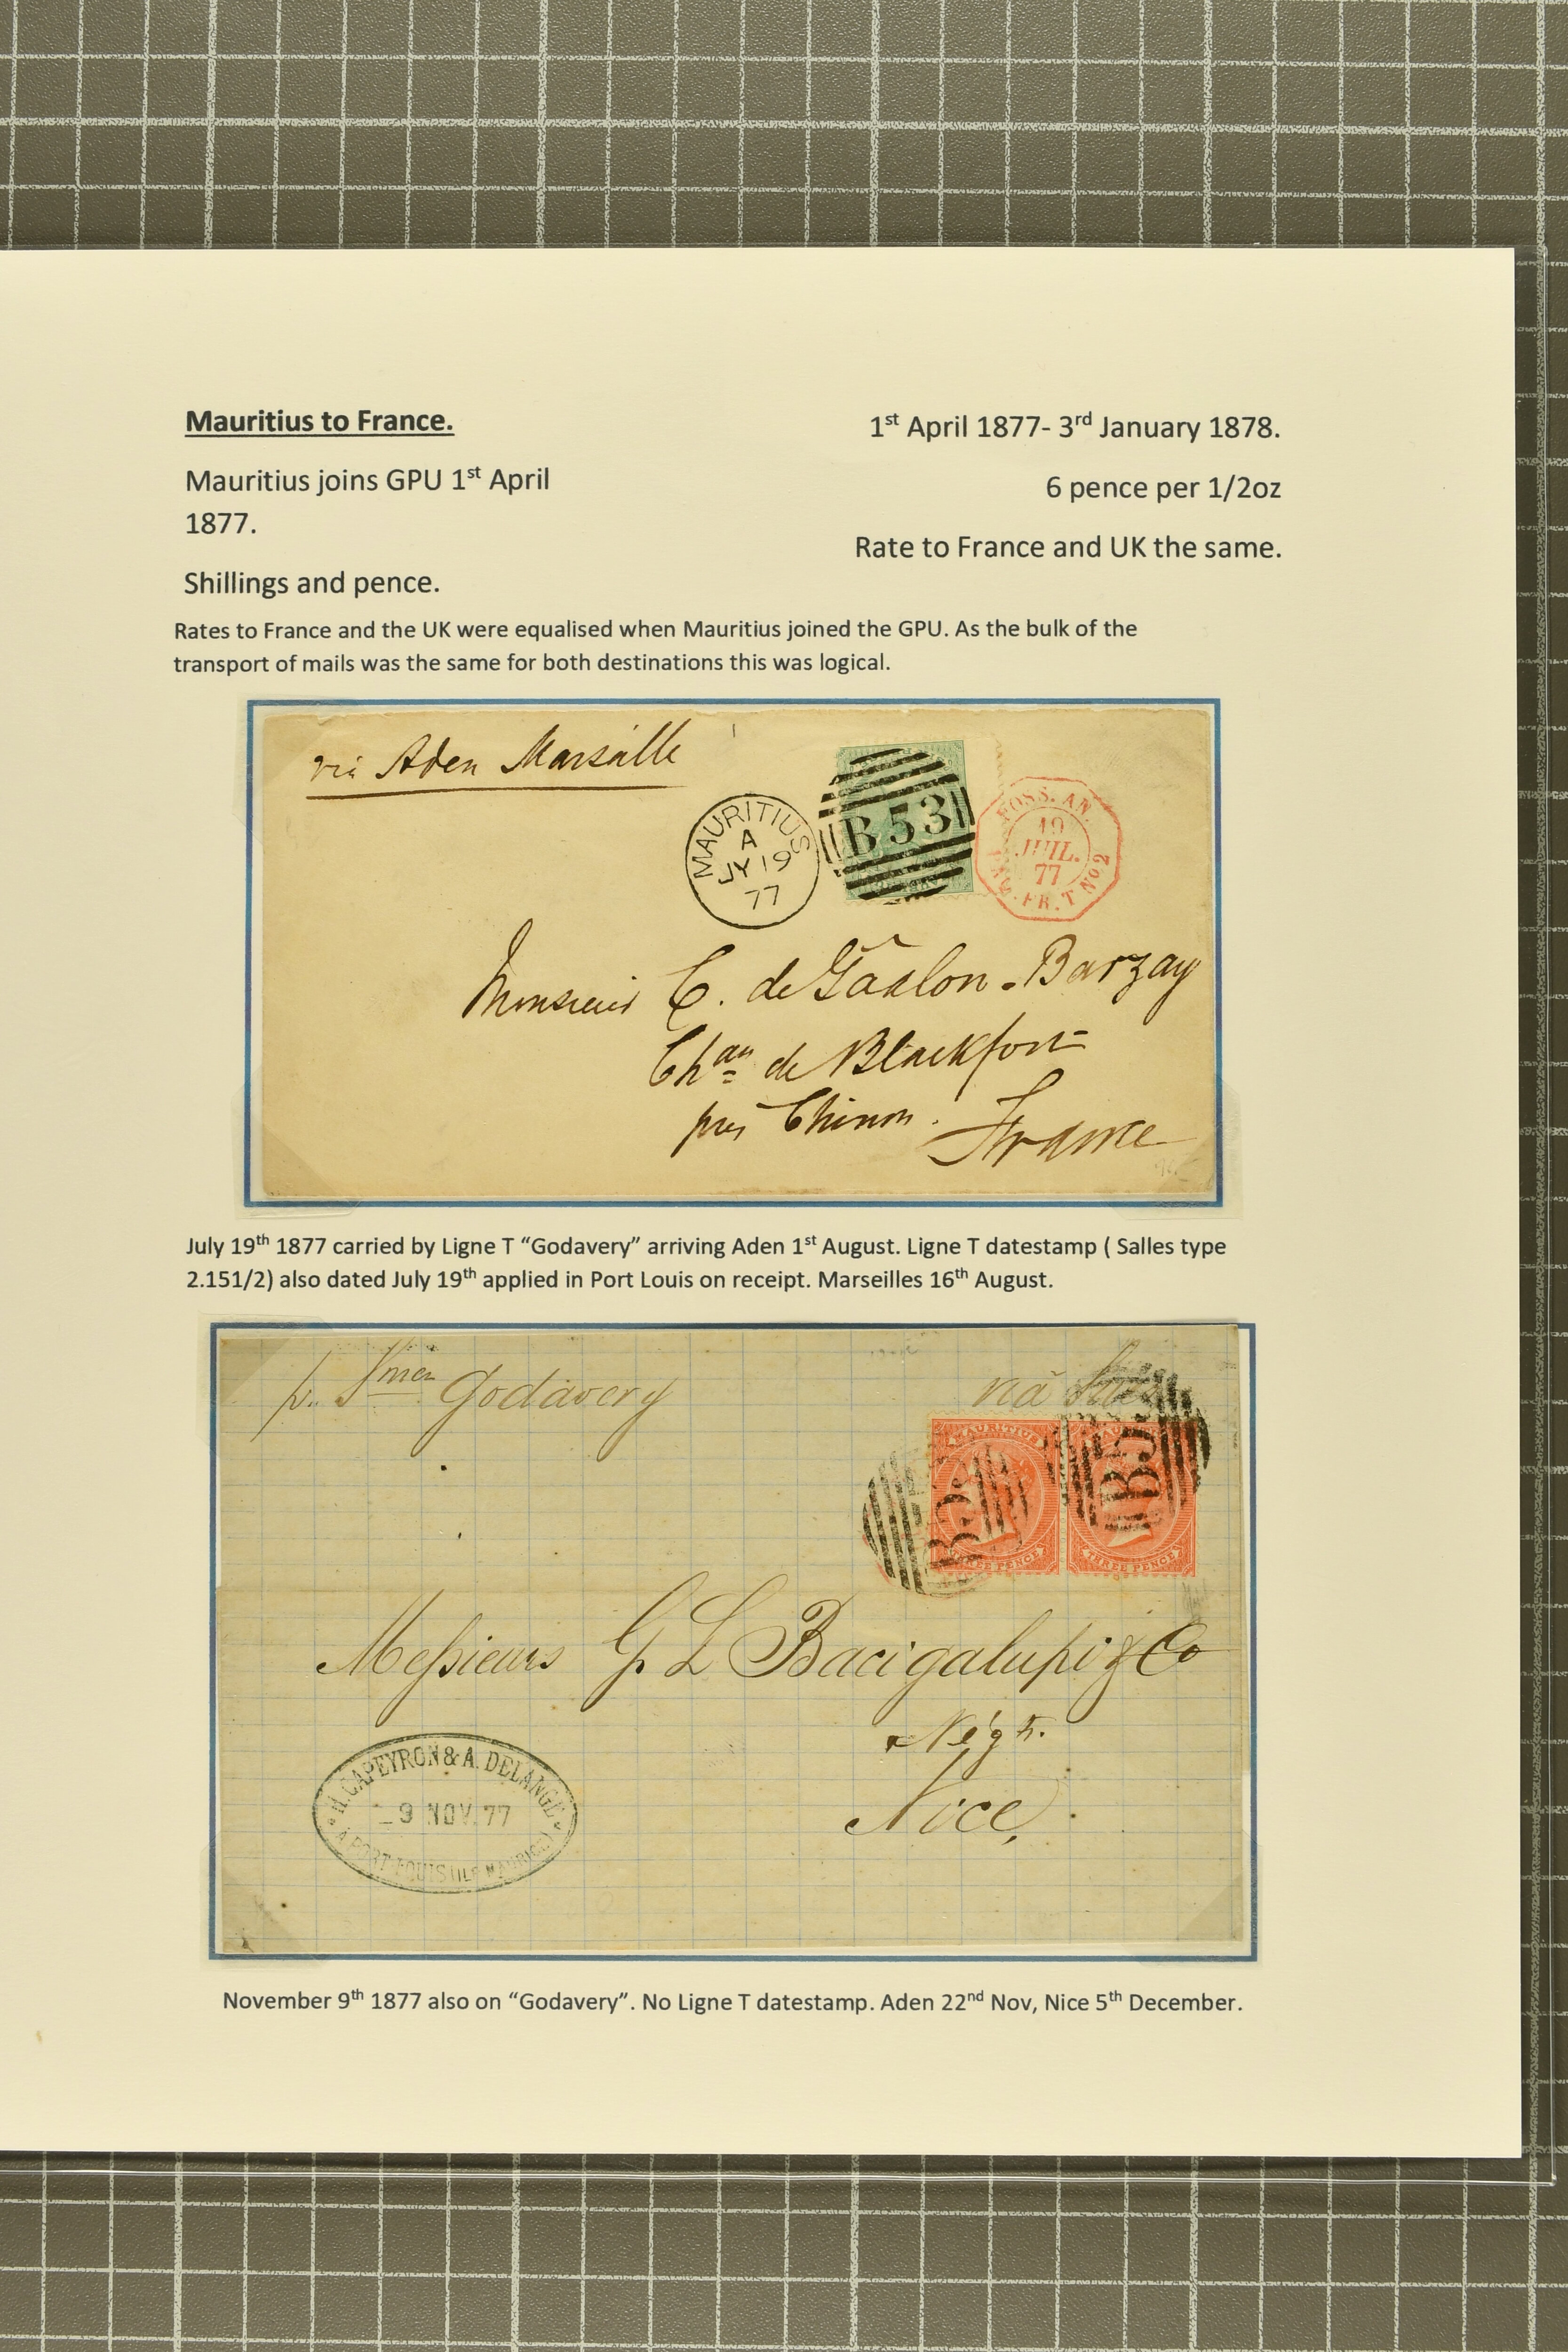 Mauritius to France.
1st April 1877- 3rd January 1878.
Mauritius joins GPU 1st April
1877.
6 pence per 1/2oz
Rate to France and UK the same.
Shillings and pence.
Rates to France and the UK were equalised when Mauritius joined the GPU. As the bulk of the
transport of mails was the same for both destinations this was logical.
via Aden Marseille
MAURITIUS
A
JY 19
77
B53
POSS. AN.
19
JUIL.
77
PAQ. FR. T No 2
Monsieur C. de Gaalon - Barzay
Chau de Blackfort
près Chinon.
France
July 19th 1877 carried by Ligne T “Godavery” arriving Aden 1st August. Ligne T datestamp ( Salles type
2.151/2) also dated July 19th applied in Port Louis on receipt. Marseilles 16th August.
p. Smer Godavery
via Suez
MAURITIUS
B53
B53
THREE PENCE
THREE PENCE
Messieurs G L Bacigalupi & Co
Negts.
Nice,
H. CAPEYRON & A. DELANGE
9 NOV. 77
A PORT-LOUIS (ILE MAURICE)
November 9th 1877 also on “Godavery”. No Ligne T datestamp. Aden 22nd Nov, Nice 5th December.